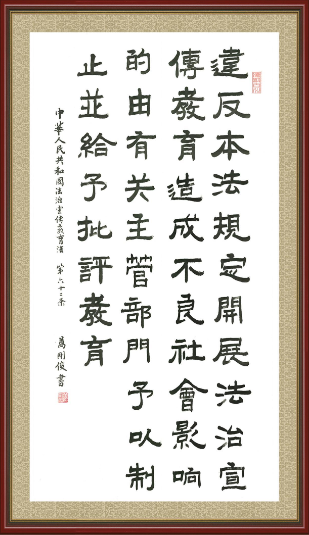 違反本法規定開展法治宣
傳教育造成不良社會影响
的由有关主管部門予以制
止並給予批評教育
中華人民共和國法治宣傳教育法 第六十二条
萬剛俊書